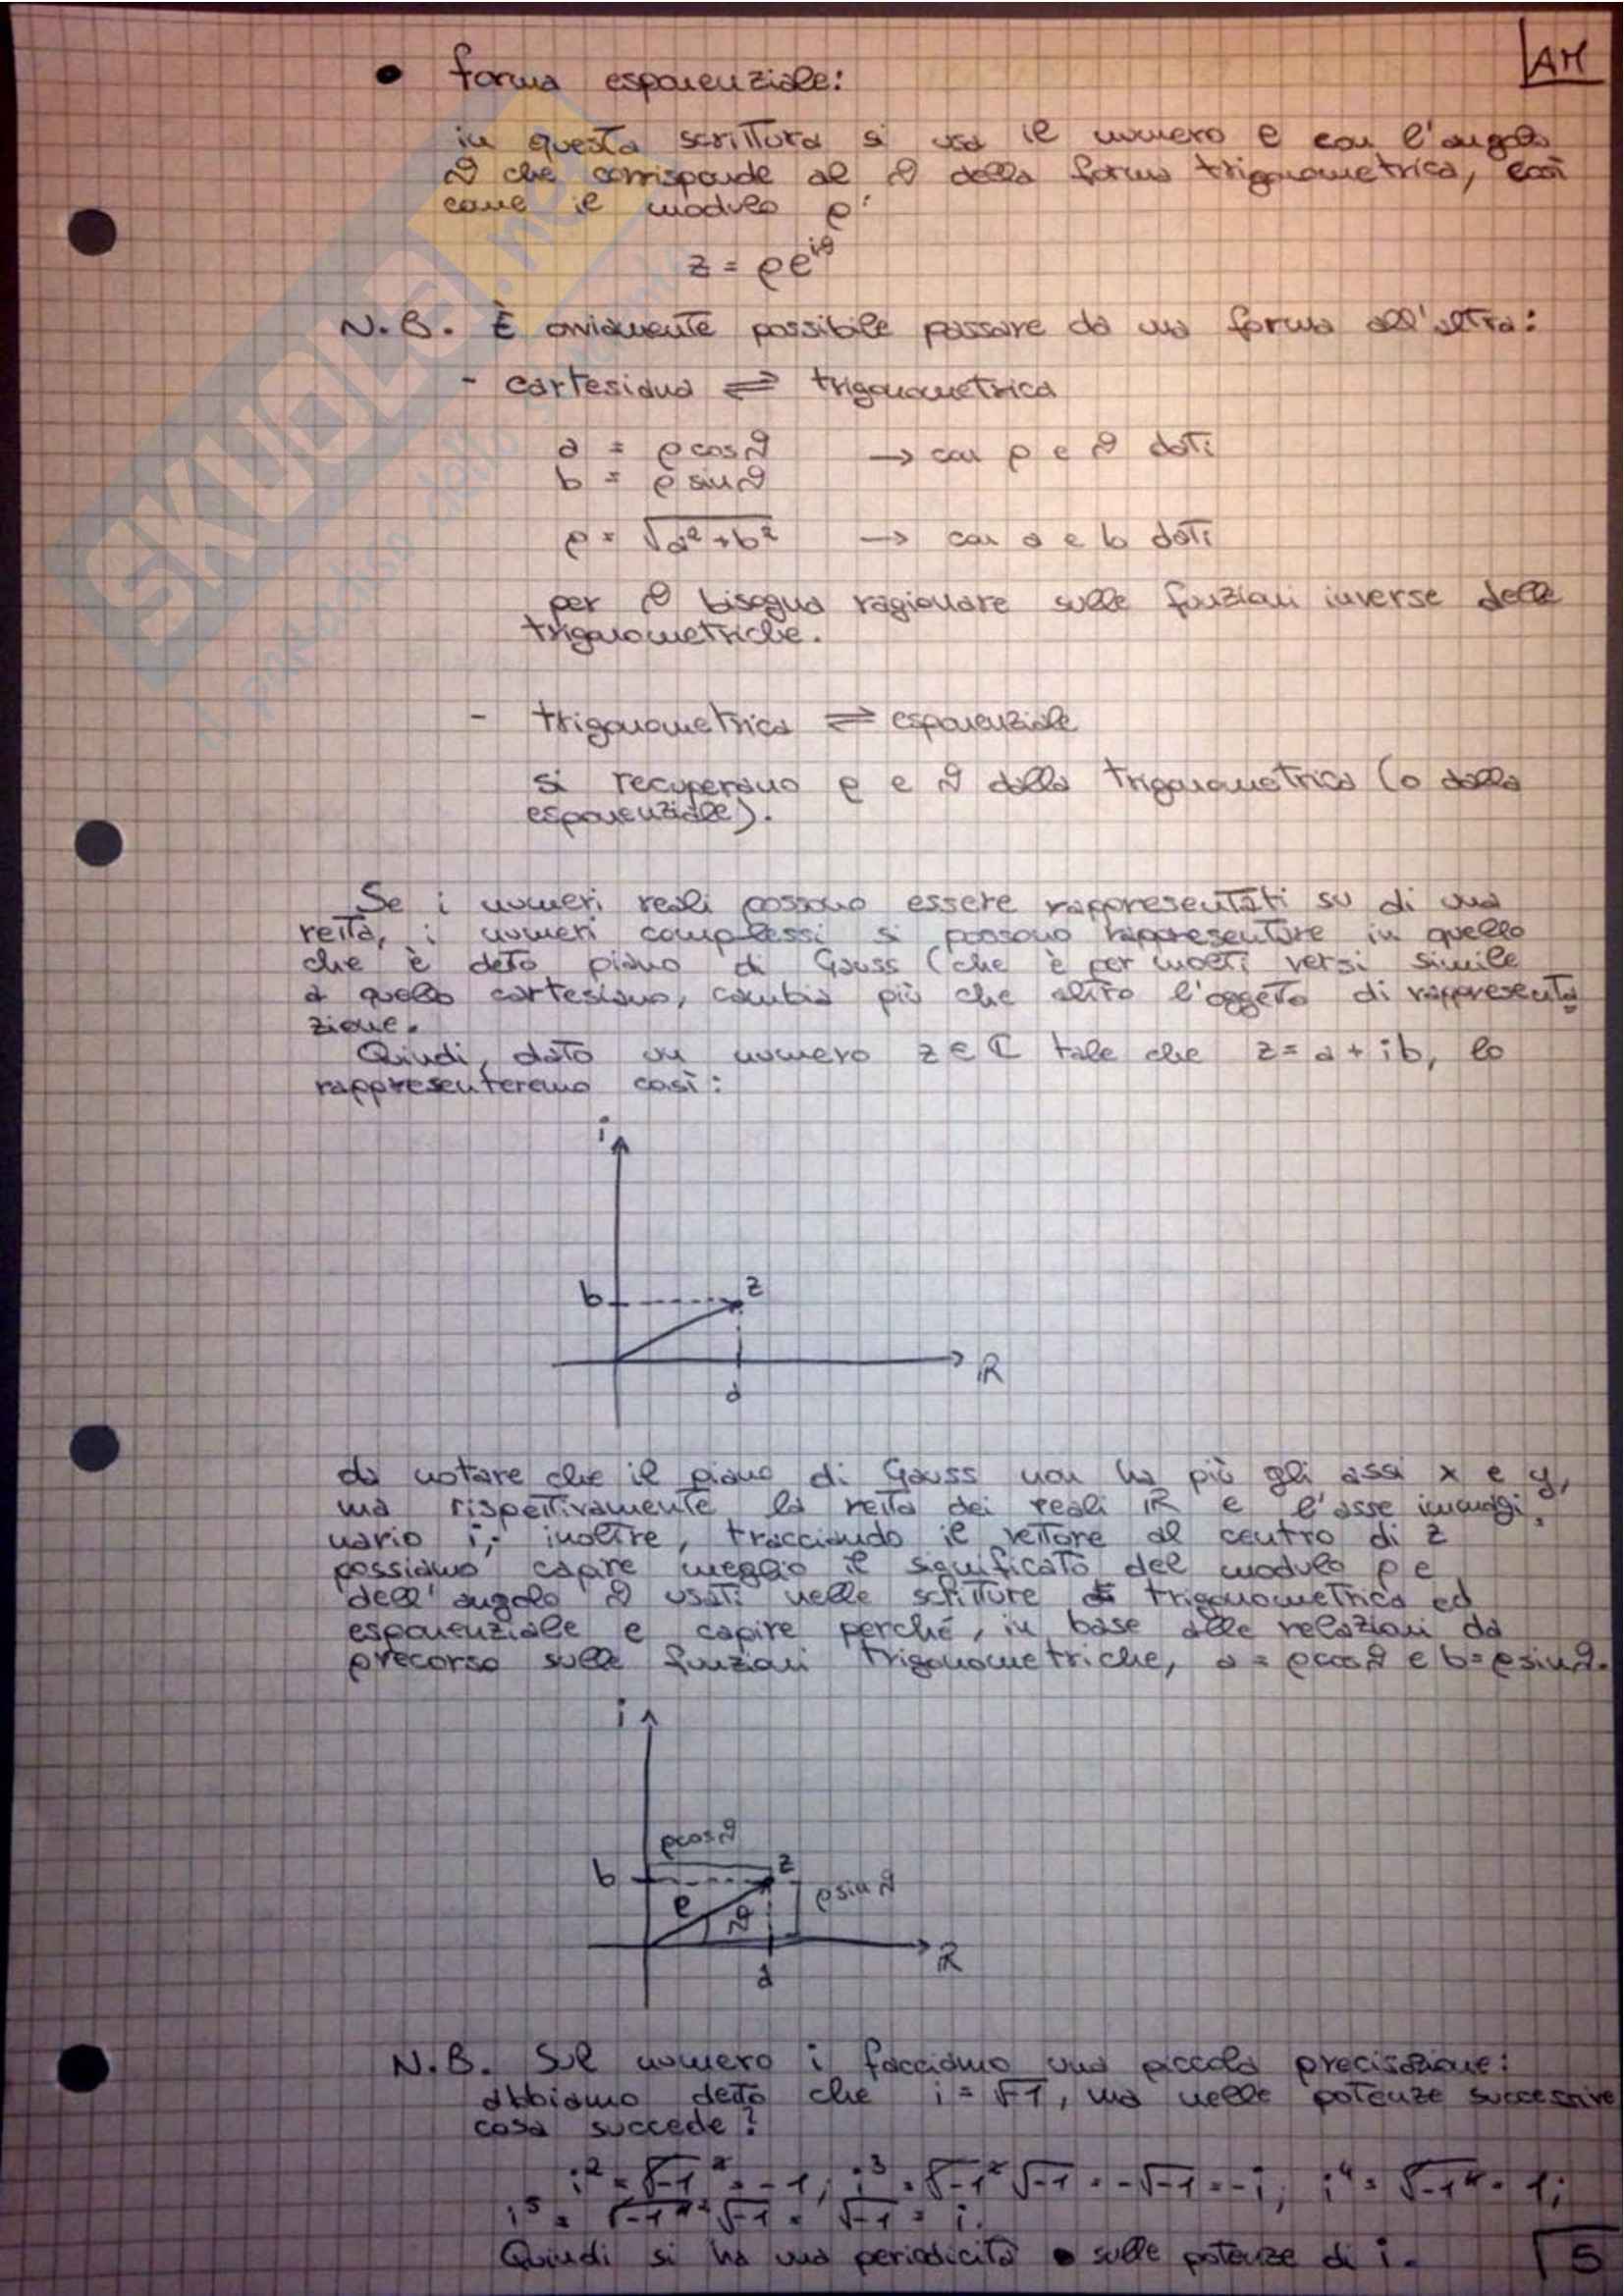 AM
• forma esponenziale:
in questa scrittura si usa il numero e con l'angolo
ϑ che corrisponde al ϑ della forma trigonometrica, così
come il modulo ρ:
z = ρe^{iϑ}
N.B. È ovviamente possibile passare da una forma all'altra:
- cartesiana ⇌ trigonometrica
a = ρcosϑ → con ρ e ϑ dati
b = ρsinϑ
ρ = √(a²+b²) → con a e b dati
per ϑ bisogna ragionare sulle funzioni inverse delle
trigonometriche.
- trigonometrica ⇌ esponenziale
si recuperano ρ e ϑ dalla trigonometrica (o dalla
esponenziale).
Se i numeri reali possono essere rappresentati su di una
retta, i numeri complessi si possono rappresentare in quello
che è detto piano di Gauss (che è per molti versi simile
a quello cartesiano, cambia più che altro l'oggetto di rappresenta
zione.
Quindi, dato un numero z ∈ ℂ tale che z = a + ib, lo
rappresenteremo così:
i
b z
ℝ
a
da notare che il piano di Gauss non ha più gli assi x e y,
ma rispettivamente la retta dei reali ℝ e l'asse immagi
nario i; inoltre, tracciando il vettore al centro di z
possiamo capire meglio il significato del modulo ρ e
dell'angolo ϑ usati nelle scritture trigonometrica ed
esponenziale e capire perché, in base alle relazioni da
precorso sulle funzioni trigonometriche, a = ρcosϑ e b = ρsinϑ.
i
ρcosϑ
b z
ρ ϑ ρsinϑ
ℝ
a
N.B. Sul numero i facciamo una piccola precisazione:
abbiamo detto che i = √-1, ma nelle potenze successive
cosa succede?
i² = √-1² = -1; i³ = √-1² √-1 = -√-1 = -i; i⁴ = √-1⁴ = 1;
√-1 = √-1 = i.
Quindi si ha una periodicità sulle potenze di i.
5
il paradiso dello studente
SKUOLA.net